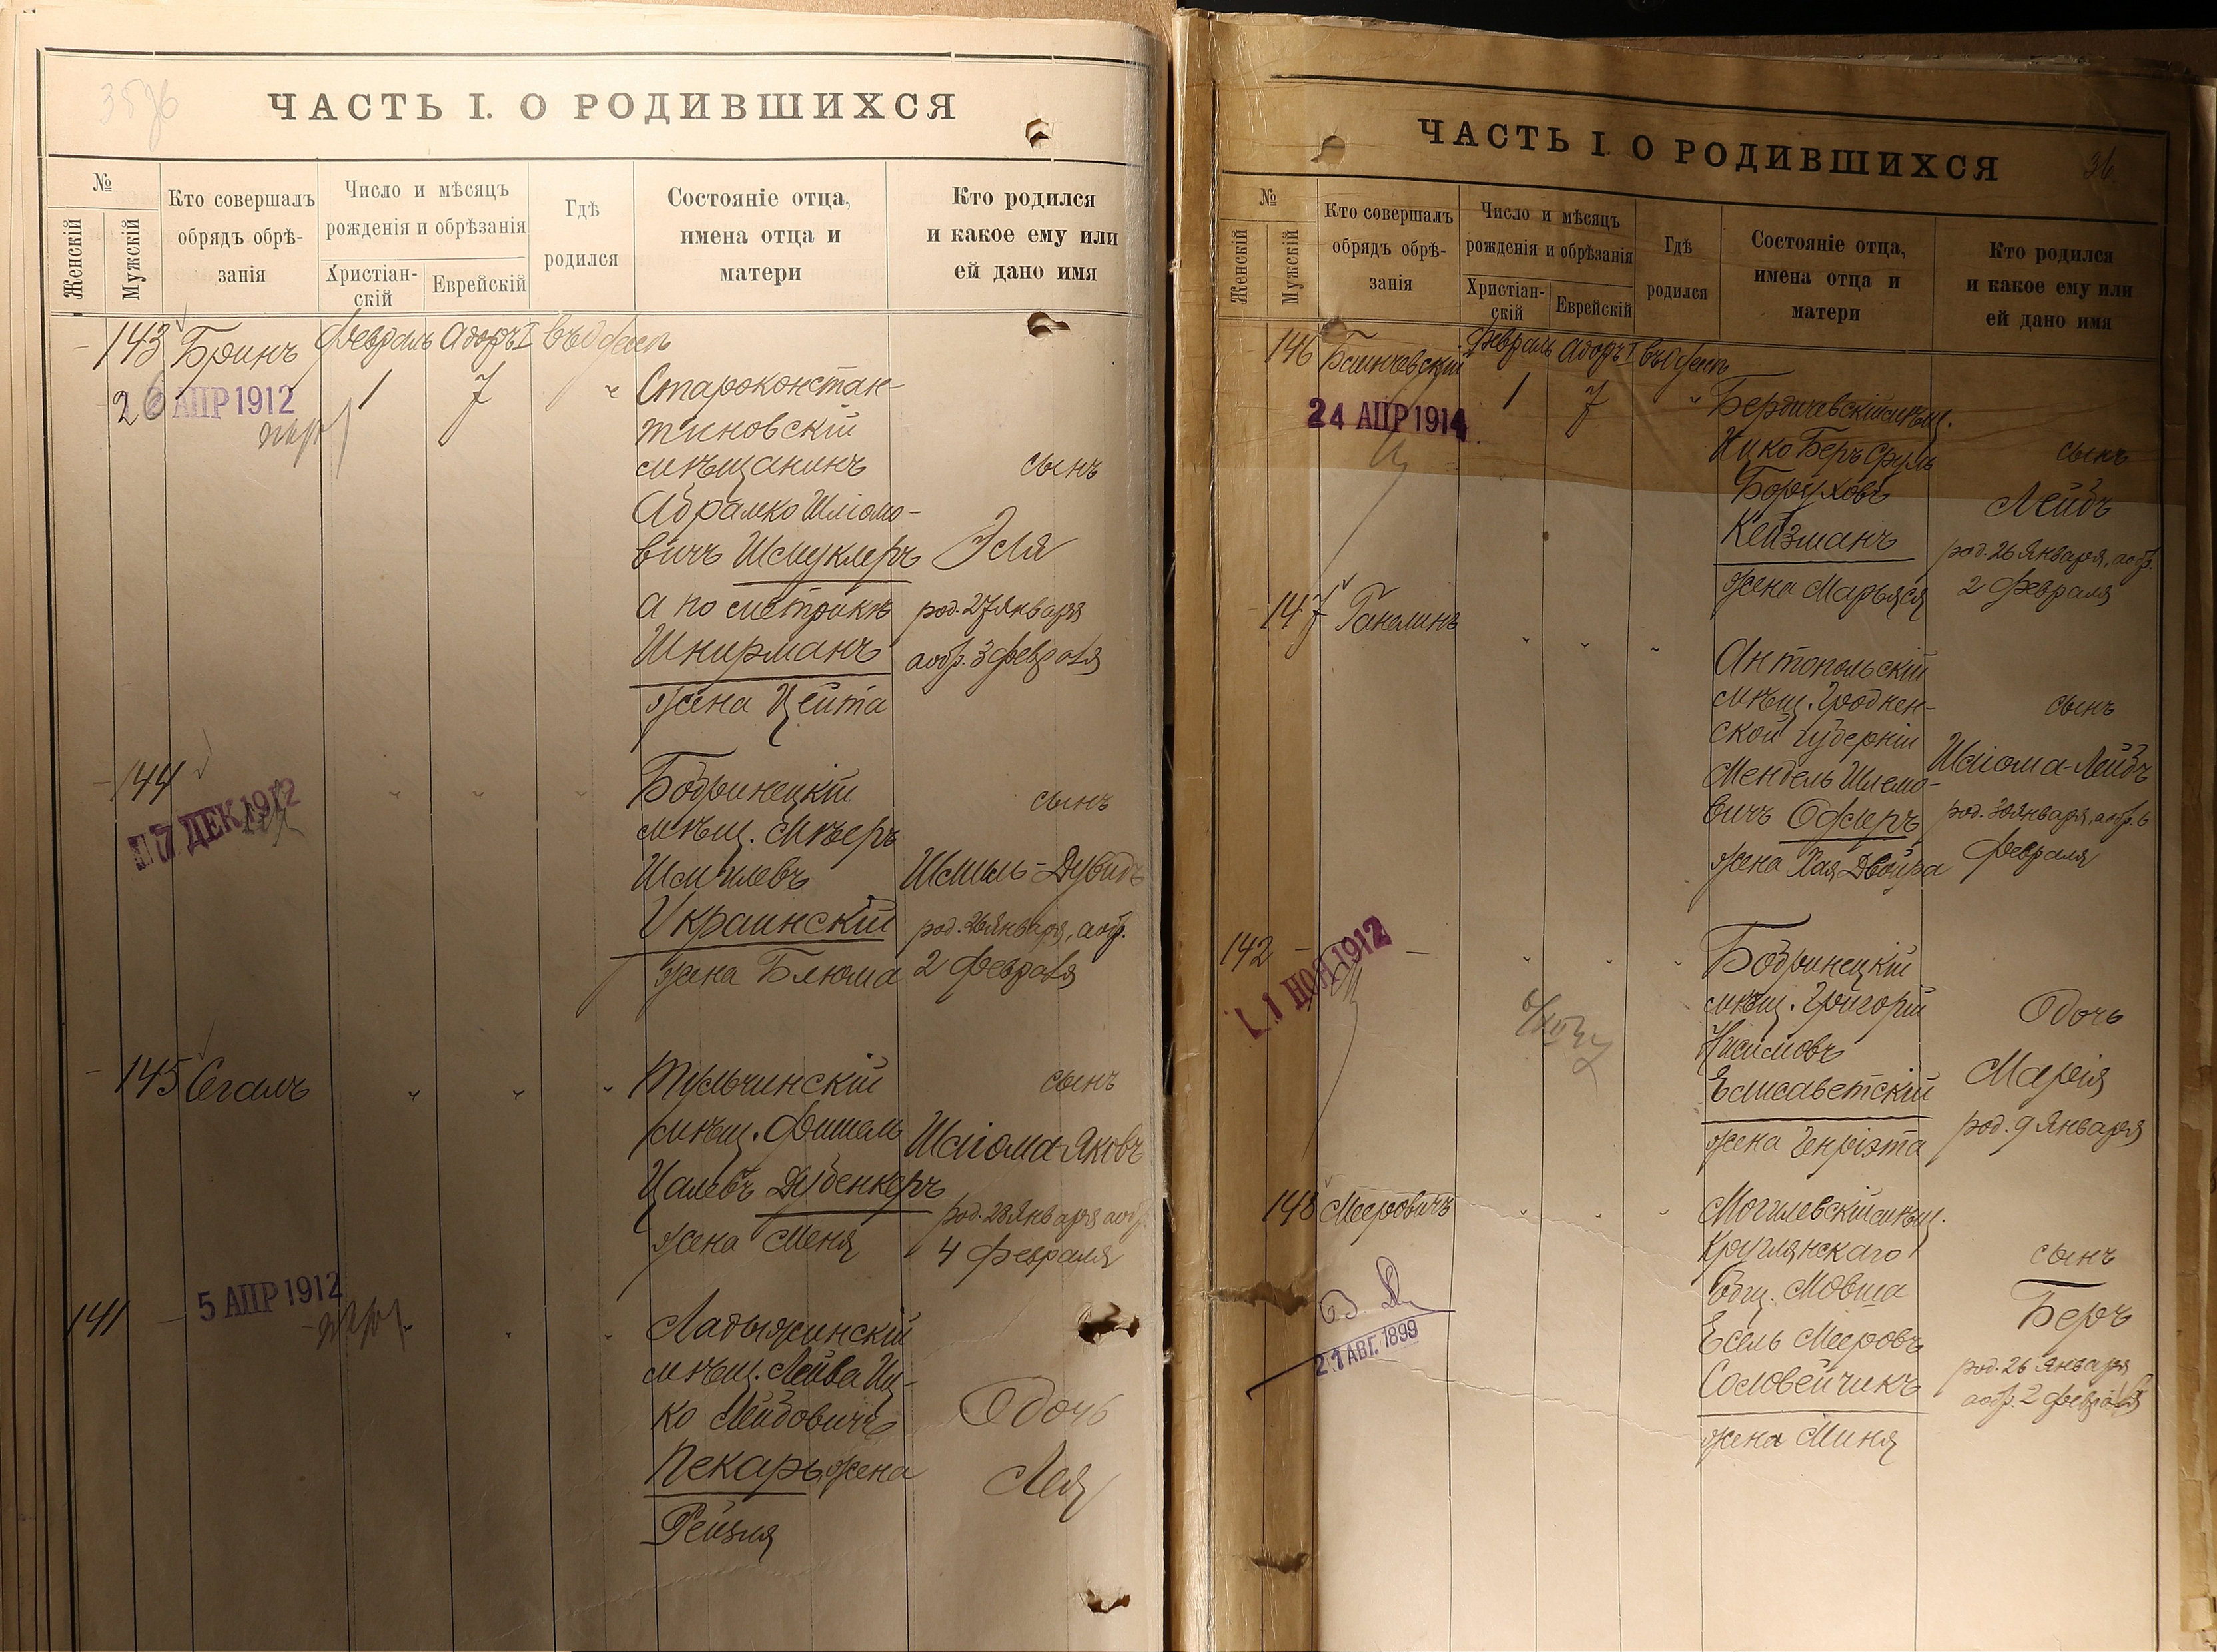 ЧАСТЬ I. О РОДИВШИХСЯ
№
Женскій
Мужскій
Кто совершалъ
обрядъ обрѣ-
занія
Число и мѣсяцъ
рожденія и обрѣзанія
Христіан-
скій
Еврейскій
Гдѣ
родился
Состояніе отца,
имена отца и
матери
Кто родился
и какое ему или
ей дано имя
143 Бринъ Февраль Адаръ I въ Одессѣ
26 АПР 1912
1 7 Староконстан-
тиновскій
мѣщанинъ сынъ
Абрамко Шліомо-
вичъ Шмуклеръ Эля
а по метрикѣ род. 27 Января
Шнирманъ а обр. 3 февраля
жена Цейта
144 Бобринецкій
17 ДЕК 1912
мѣщ. Мѣеръ сынъ
Шмилевъ Шмиль-Дувидъ
Украинскій род. 26 Января, а обр.
жена Блюма 2 февраля
145 Сегалъ Тульчинскій сынъ
мѣщ. Фишель Шліома Яковъ
Цалевъ Дубенкеръ
род. 28 Января а обр.
жена Меня 4 февраля
5 АПР 1912
141 Ладыжинскій
мѣщ. Лейва Иц-
ко Лейбовичъ дочь
Пекарь, жена Лея
Рейзя
ЧАСТЬ I. О РОДИВШИХСЯ
36
№
Женскій
Мужскій
Кто совершалъ
обрядъ обрѣ-
занія
Число и мѣсяцъ
рожденія и обрѣзанія
Христіан-
скій
Еврейскій
Гдѣ
родился
Состояніе отца,
имена отца и
матери
Кто родился
и какое ему или
ей дано имя
146 Февраль Адаръ I въ Одессѣ
24 АПР 1914
1 7 Бердичевскій мѣщ.
Ицко Беръ Сруль сынъ
Боруховъ Лейбъ
Кейзманъ род. 26 Января, а обр.
жена Марьяся 2 февраля
147 Ганелинъ
Антопольскій
мѣщ. Гроднен- сынъ
ской губерніи
Мендель Шлемо- Шліома-Лейбъ
вичъ Офмеръ род. 30 Января, а обр. 6
жена Хая Двойра февраля
142 Бобринецкій
1 НОЯ 1912
мѣщ. Григорій дочь
Нисимовъ
Елисаветскій Марія
жена Генріэта род. 9 Января
148 Мееровичъ Могилевскій мѣщ.
Круглянскаго сынъ
общ. Мовша
Есель Мееровъ Беръ
21 АВГ. 1899
Соловейчикъ род. 26 Января
а обр. 2 февраля
жена Миня